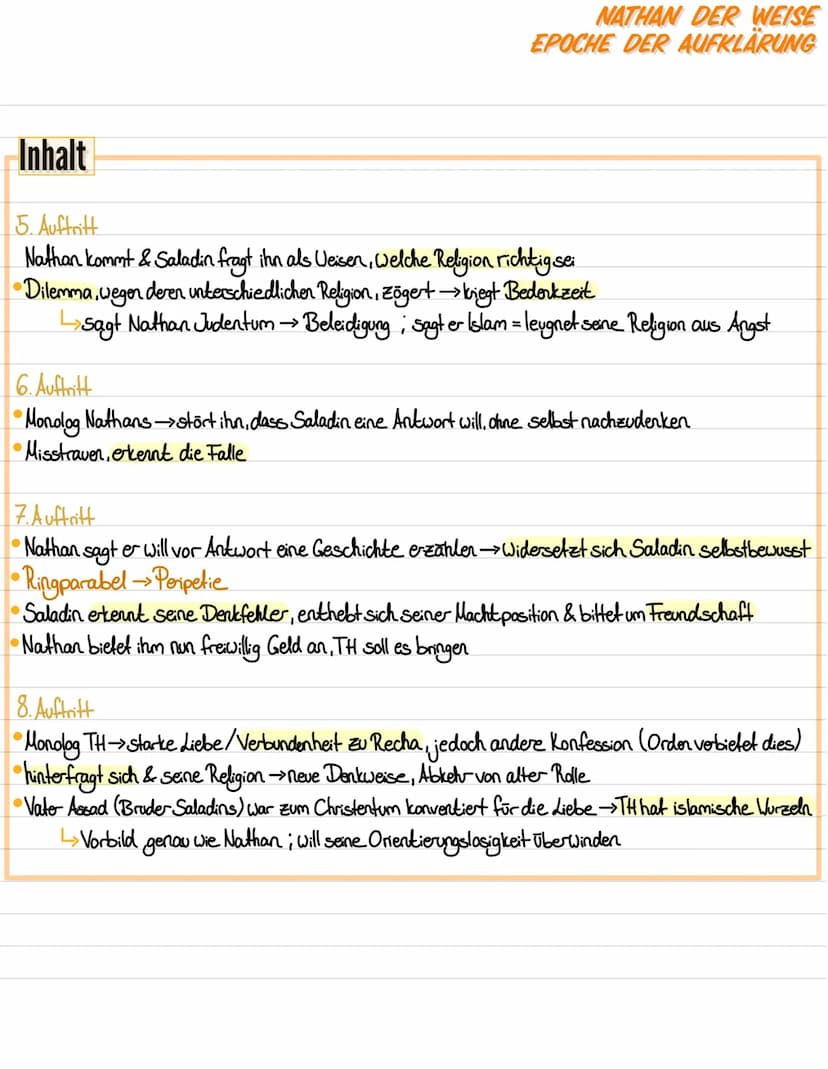 NATHAN DER WEISE
EPOCHE DER AUFKLÄRUNG
Inhalt
5. Auftritt
Nathan kommt & Saladin fragt ihn als Weisen, welche Religion richtig sei
• Dilemma, wegen deren unterschiedlichen Religion, zögert → kriegt Bedenkzeit
↳ sagt Nathan Judentum → Beleidigung ; sagt er Islam = leugnet seine Religion aus Angst
6. Auftritt
• Monolog Nathans → stört ihn, dass Saladin eine Antwort will, ohne selbst nachzudenken
• Misstrauen, erkennt die Falle
7. Auftritt
• Nathan sagt er will vor Antwort eine Geschichte erzählen → Widersetzt sich Saladin selbstbewusst
• Ringparabel → Peripetie
• Saladin erkennt seine Denkfehler, enthebt sich seiner Machtposition & bittet um Freundschaft
• Nathan bietet ihm nun freiwillig Geld an, TH soll es bringen
8. Auftritt
• Monolog TH → starke Liebe/Verbundenheit zu Recha, jedoch andere Konfession (Orden verbietet dies)
• hinterfragt sich & seine Religion → neue Denkweise, Abkehr von alter Rolle
• Vater Assad (Bruder Saladins) war zum Christentum konvertiert für die Liebe → TH hat islamische Wurzeln
↳ Vorbild genau wie Nathan ; will seine Orientierungslosigkeit überwinden